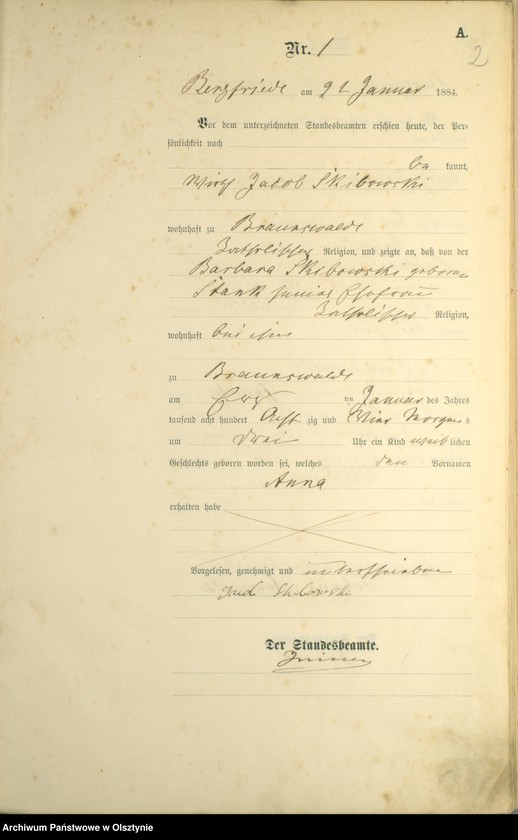 A.
2
Nr. 1
Bergfriede am 21 Januar 1884.
Vor dem unterzeichneten Standesbeamten erschien heute, der Per-
sönlichkeit nach
be kannt,
Wirth Jacob Skibowski
wohnhaft zu Braunswalde
katholischer Religion, und zeigte an, daß von der
Barbara Skibowski geborenen
Stank seiner Ehefrau
katholischer Religion,
wohnhaft bei ihm
zu Braunswalde
am ten Januar des Jahres
tausend acht hundert Acht zig und Vier Morgens
um drei Uhr ein Kind weiblichen
Geschlechts geboren worden sei, welches den Vornamen
Anna
erhalten habe
Vorgelesen, genehmigt und unterschrieben
Jacob Skibowski
Der Standesbeamte.
Archiwum Państwowe w Olsztynie